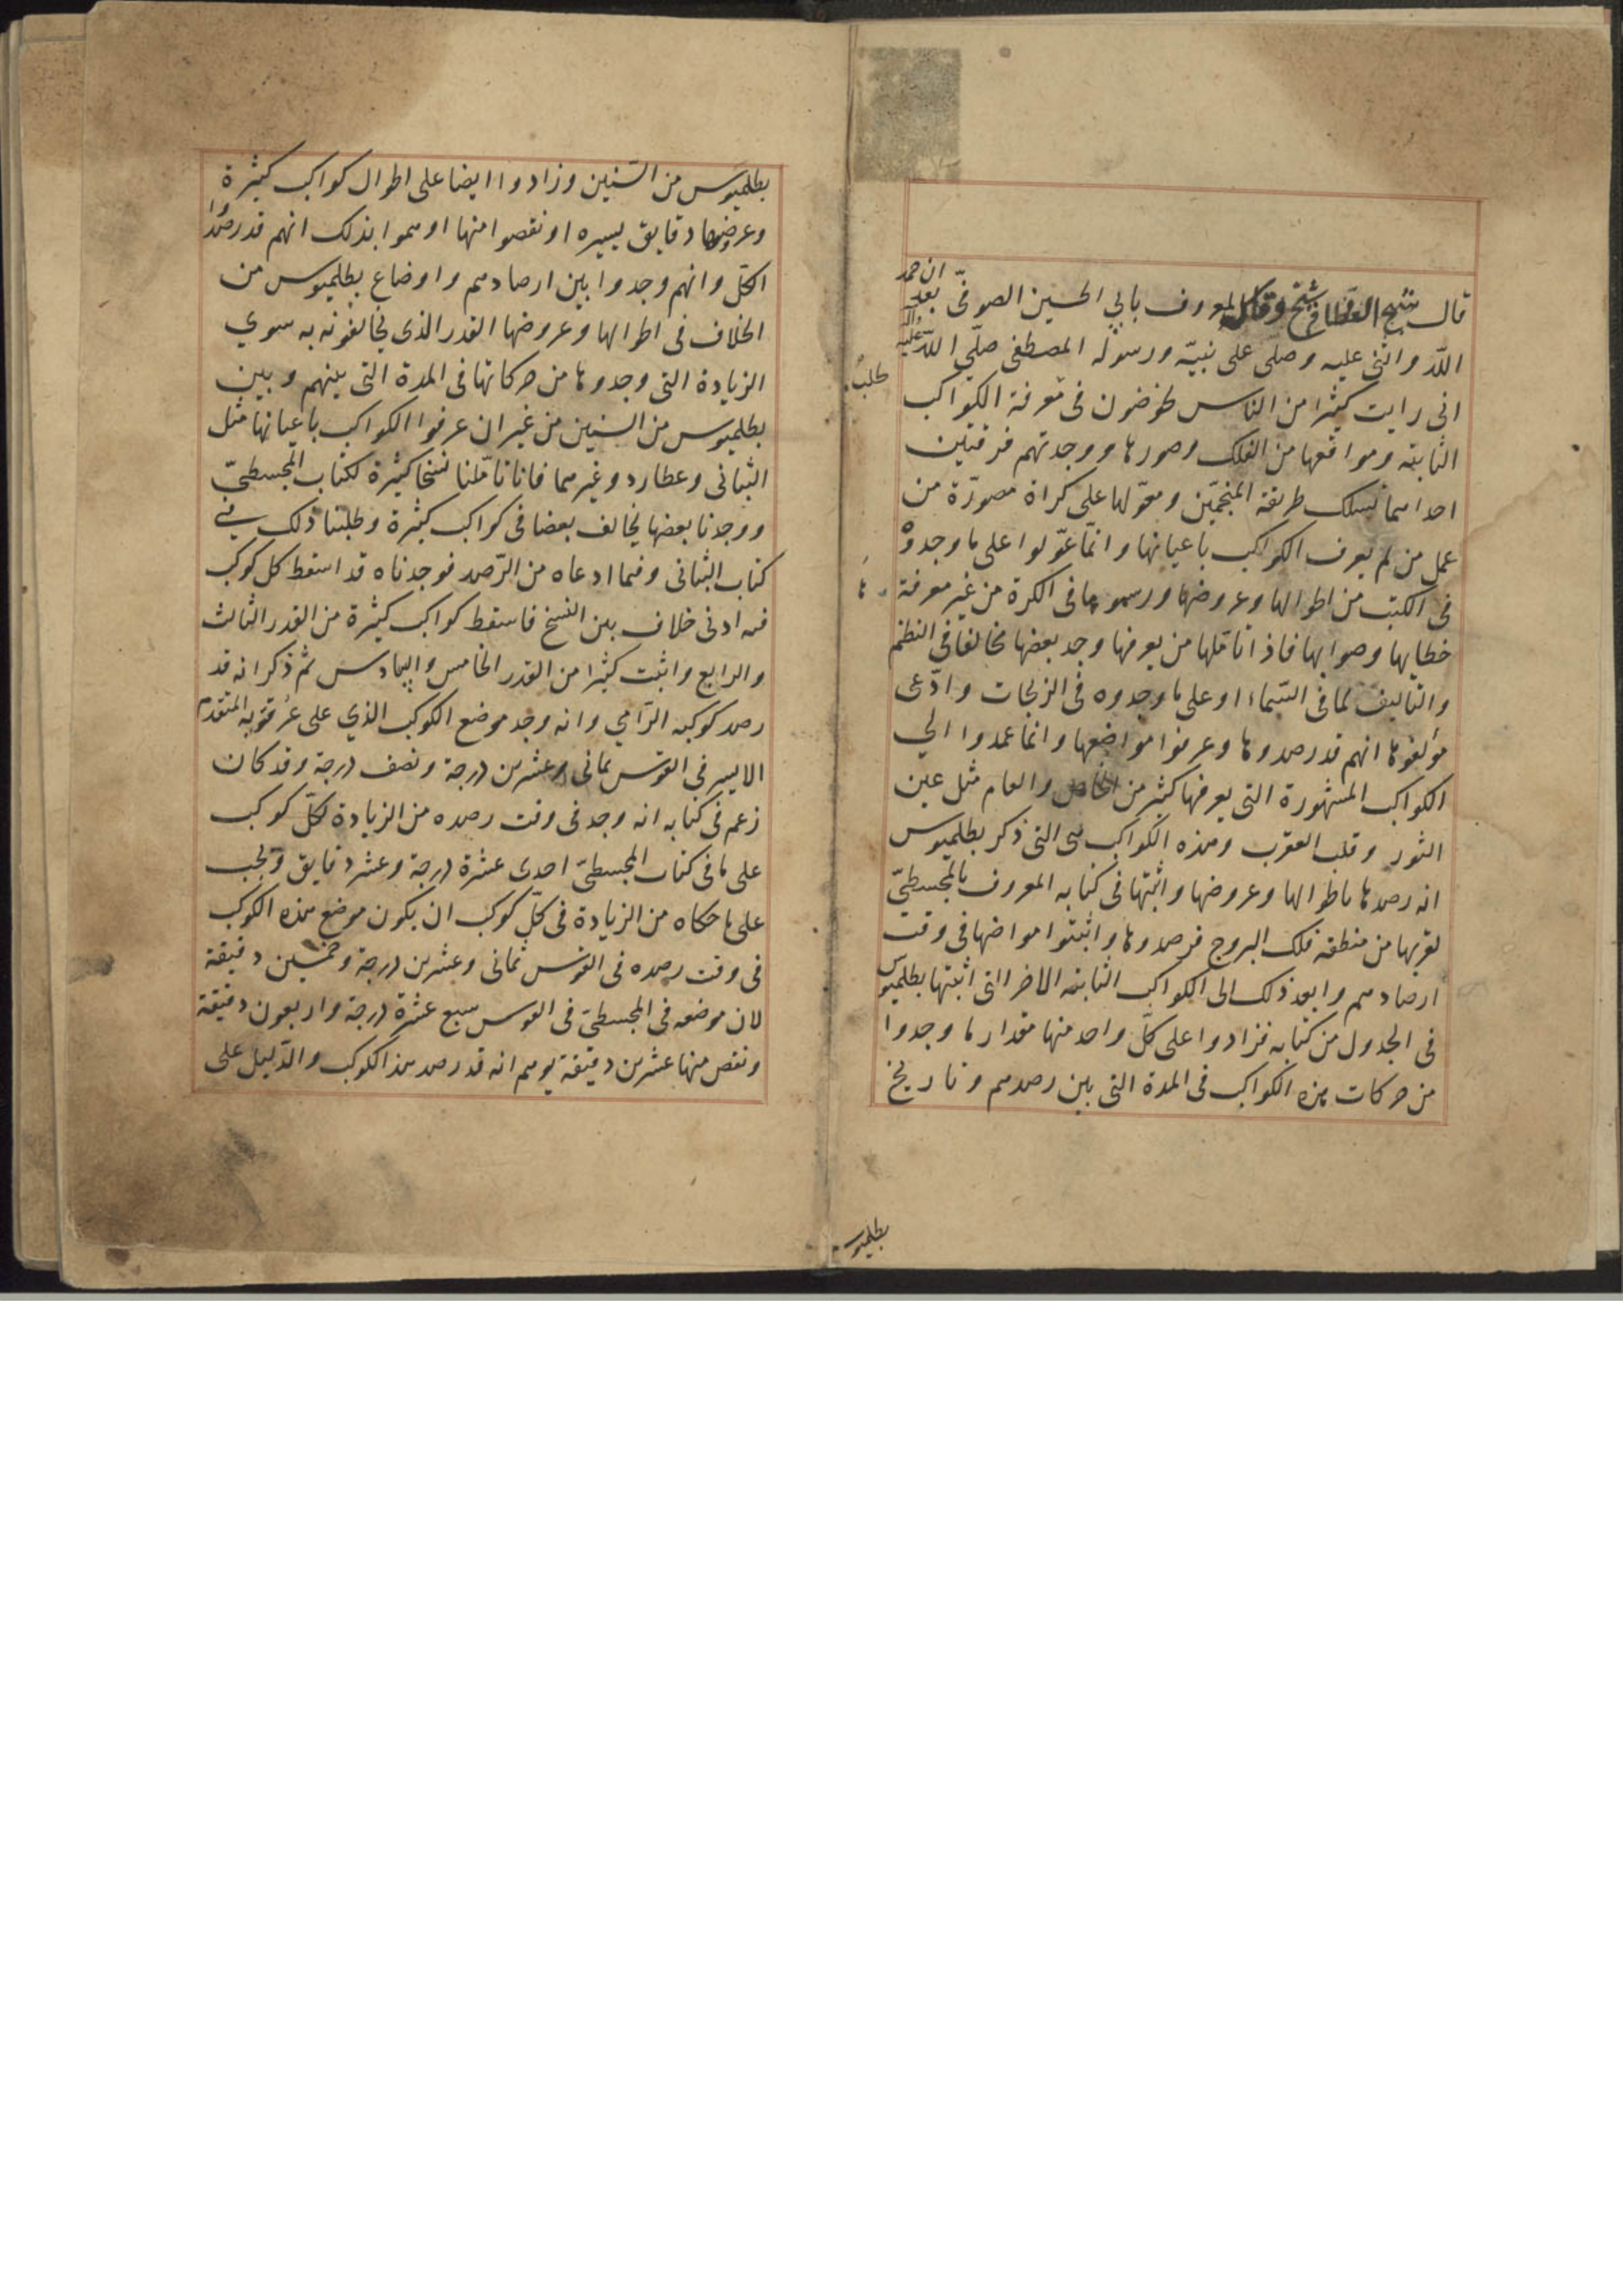 قال شيخ المعروف بابي الحسين الصوفي بعد ان حمد
الله واثنى عليه وصلى على نبيه ورسوله المصطفى صلى الله عليه
انى رايت كثيرا من الناس يخوضون فى معرفة الكواكب
الثابته ومواقعها من الفلك وصورها ووجدتهم فرقتين
احداهما تسلك طريقة المنجمين ومعولها على كراة مصورة من
عمل من لم يعرف الكواكب باعيانها وانما عولوا على ما وجدوه
فى الكتب من اطوالها وعروضها ورسموها فى الكرة من غير معرفة
خطايها وصوابها فاذا تاملها من يعرفها وجد بعضها مخالفا فى النظم
والتاليف لما فى السماء او على ما وجدوه فى الزيجات وادعى
مولفوها انهم قد رصدوها وعرفوا مواضعها وانما عمدوا الي
الكواكب المشهورة التى يعرفها كثير من الخاص والعام مثل عين
الثور وقلب العقرب وهذه الكواكب هى التى ذكر بطلميوس
انه رصدها باطوالها وعروضها واثبتها فى كتابه المعروف بالمجسطى
لقربها من منطقه فلك البروج فرصدوها واثبتوا مواضعها فى وقت
ارصادهم وابعد ذلك الى الكواكب الثابته الاخر التى اثبتها بطلميوس
فى الجدول من كتابه فزادوا على كل واحد منها مقدار ما وجدوا
من حركات هذه الكواكب فى المدة التى بين رصدهم وتاريخ
بطلميوس
بطلميوس من السنين وزادوا ايضا على اطوال كواكب كثيرة
وعروضها دقايق يسيره او نقصوا منها اوهموا بذلك انهم قد رصدوا
الكل وانهم وجدوا بين ارصادهم واوضاع بطلميوس من
الخلاف فى اطوالها وعروضها القدر الذى يخالفونه به سوي
الزيادة التى وجدوها من حركاتها فى المدة التى بينهم وبين
بطلميوس من السنين من غير ان عرفوا الكواكب باعيانها مثل
البتانى وعطارد وغيرهما فانا تاملنا نسخا كثيرة لكتاب المجسطى
ووجدنا بعضها يخالف بعضا فى كواكب كثيرة وطلبنا ذلك في
كتاب البتانى وفيما ادعاه من الرصد فوجدناه قد اسقط كل كوكب
فيه ادنى خلاف بين النسخ فاسقط كواكب كثيرة من القدر الثالث
والرابع واثبت كثيرا من القدر الخامس والسادس ثم ذكر انه قد
رصد كوكبه الرامي وانه وجد موضع الكوكب الذي على عرقوبه المتقدم
الايسر فى القوس ثمانى وعشرين درجة ونصف درجة وقد كان
زعم فى كتابه انه وجد فى وقت رصده من الزيادة لكل كوكب
على ما فى كتاب المجسطى احدى عشرة درجة وعشر دقايق ويجب
على ما حكاه من الزيادة فى كل كوكب ان يكون موضع هذه الكوكب
فى وقت رصده فى القوس ثمانى وعشرين درجة وخمسين دقيقة
لان موضعه فى المجسطى فى القوس سبع عشرة درجة واربعون دقيقة
ونقص منها عشرين دقيقة يوهم انه قد رصد هذا الكوكب والدليل على